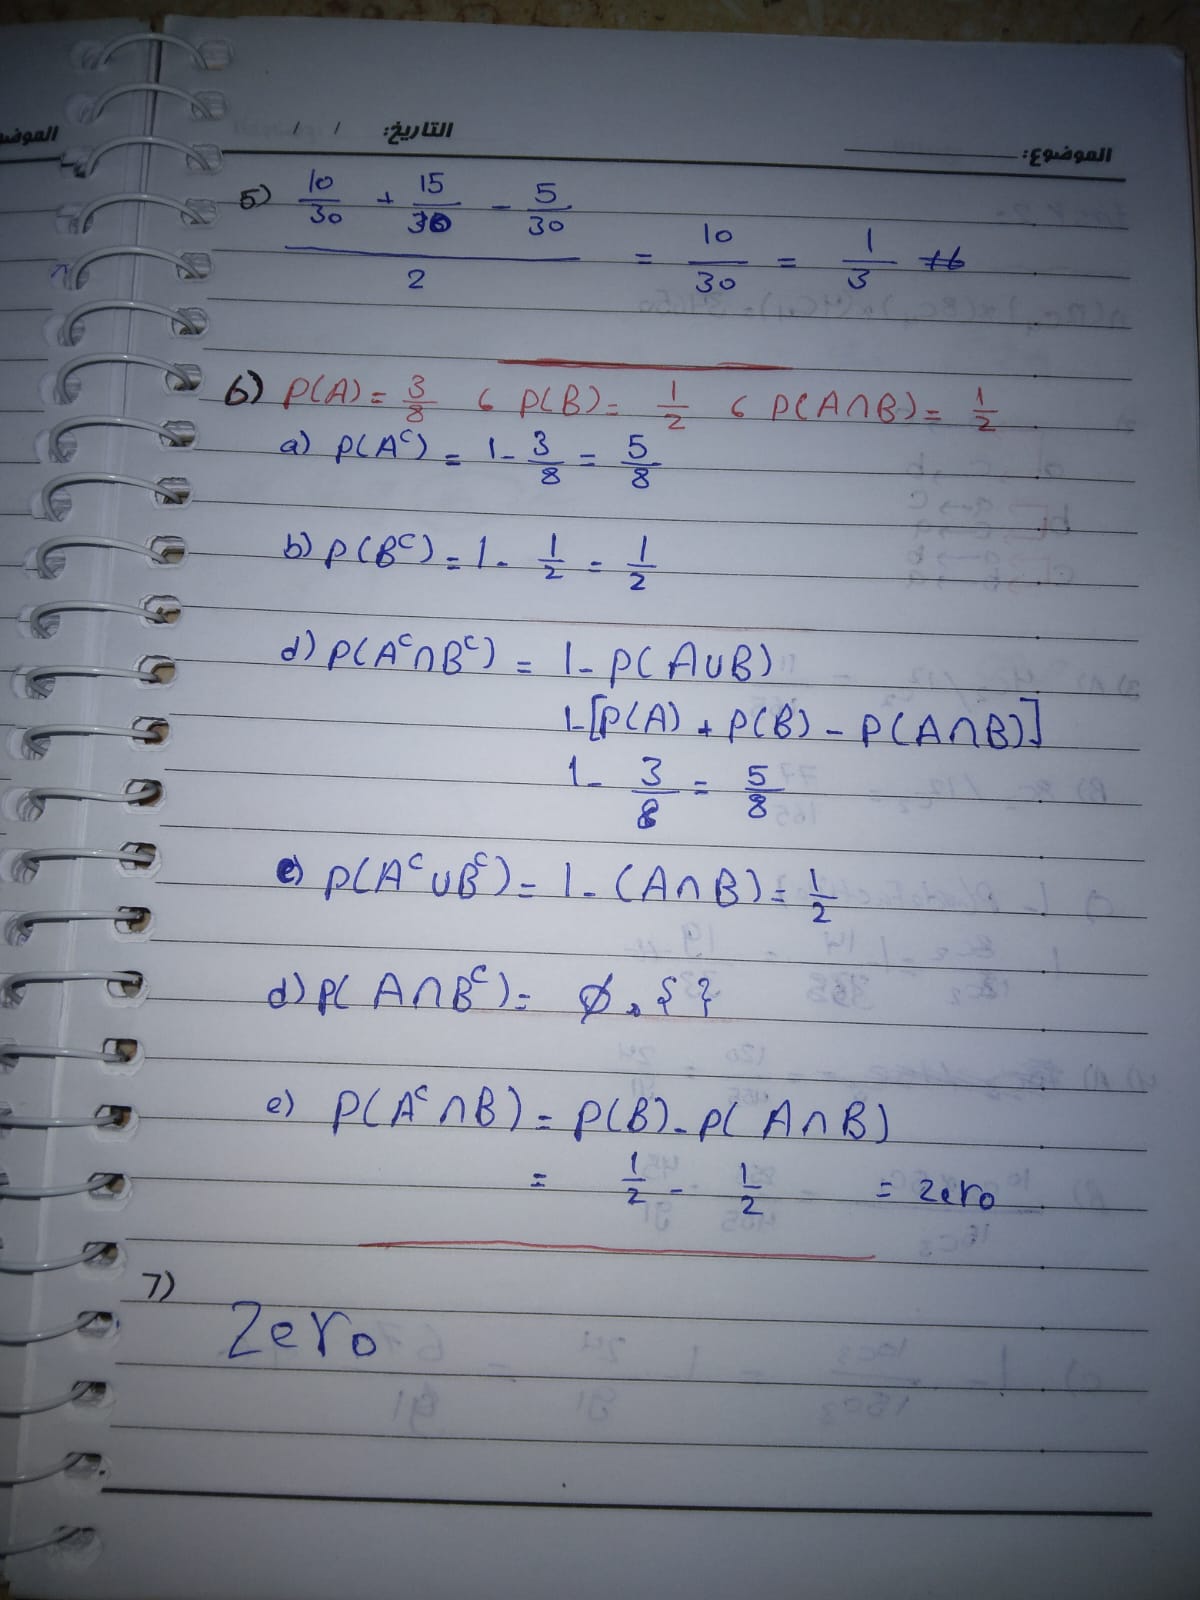 التاريخ: / / الموضوع:
5) 10/30 + 15/30 - 5/30
/ 2 = 10/30 = 1/3
6) P(A) = 3/8 , P(B) = 1/2 , P(A∩B) = 1/2
a) P(Aᶜ) = 1 - 3/8 = 5/8
b) P(Bᶜ) = 1 - 1/2 = 1/2
d) P(Aᶜ∩Bᶜ) = 1 - P(A∪B)
1 - [P(A) + P(B) - P(A∩B)]
1 - 3/8 = 5/8
e) P(Aᶜ∪Bᶜ) = 1 - (A∩B) = 1/2
d) P(A∩Bᶜ) = ∅ , { }
e) P(Aᶜ∩B) = P(B) - P(A∩B)
= 1/2 - 1/2 = zero
7)
Zero